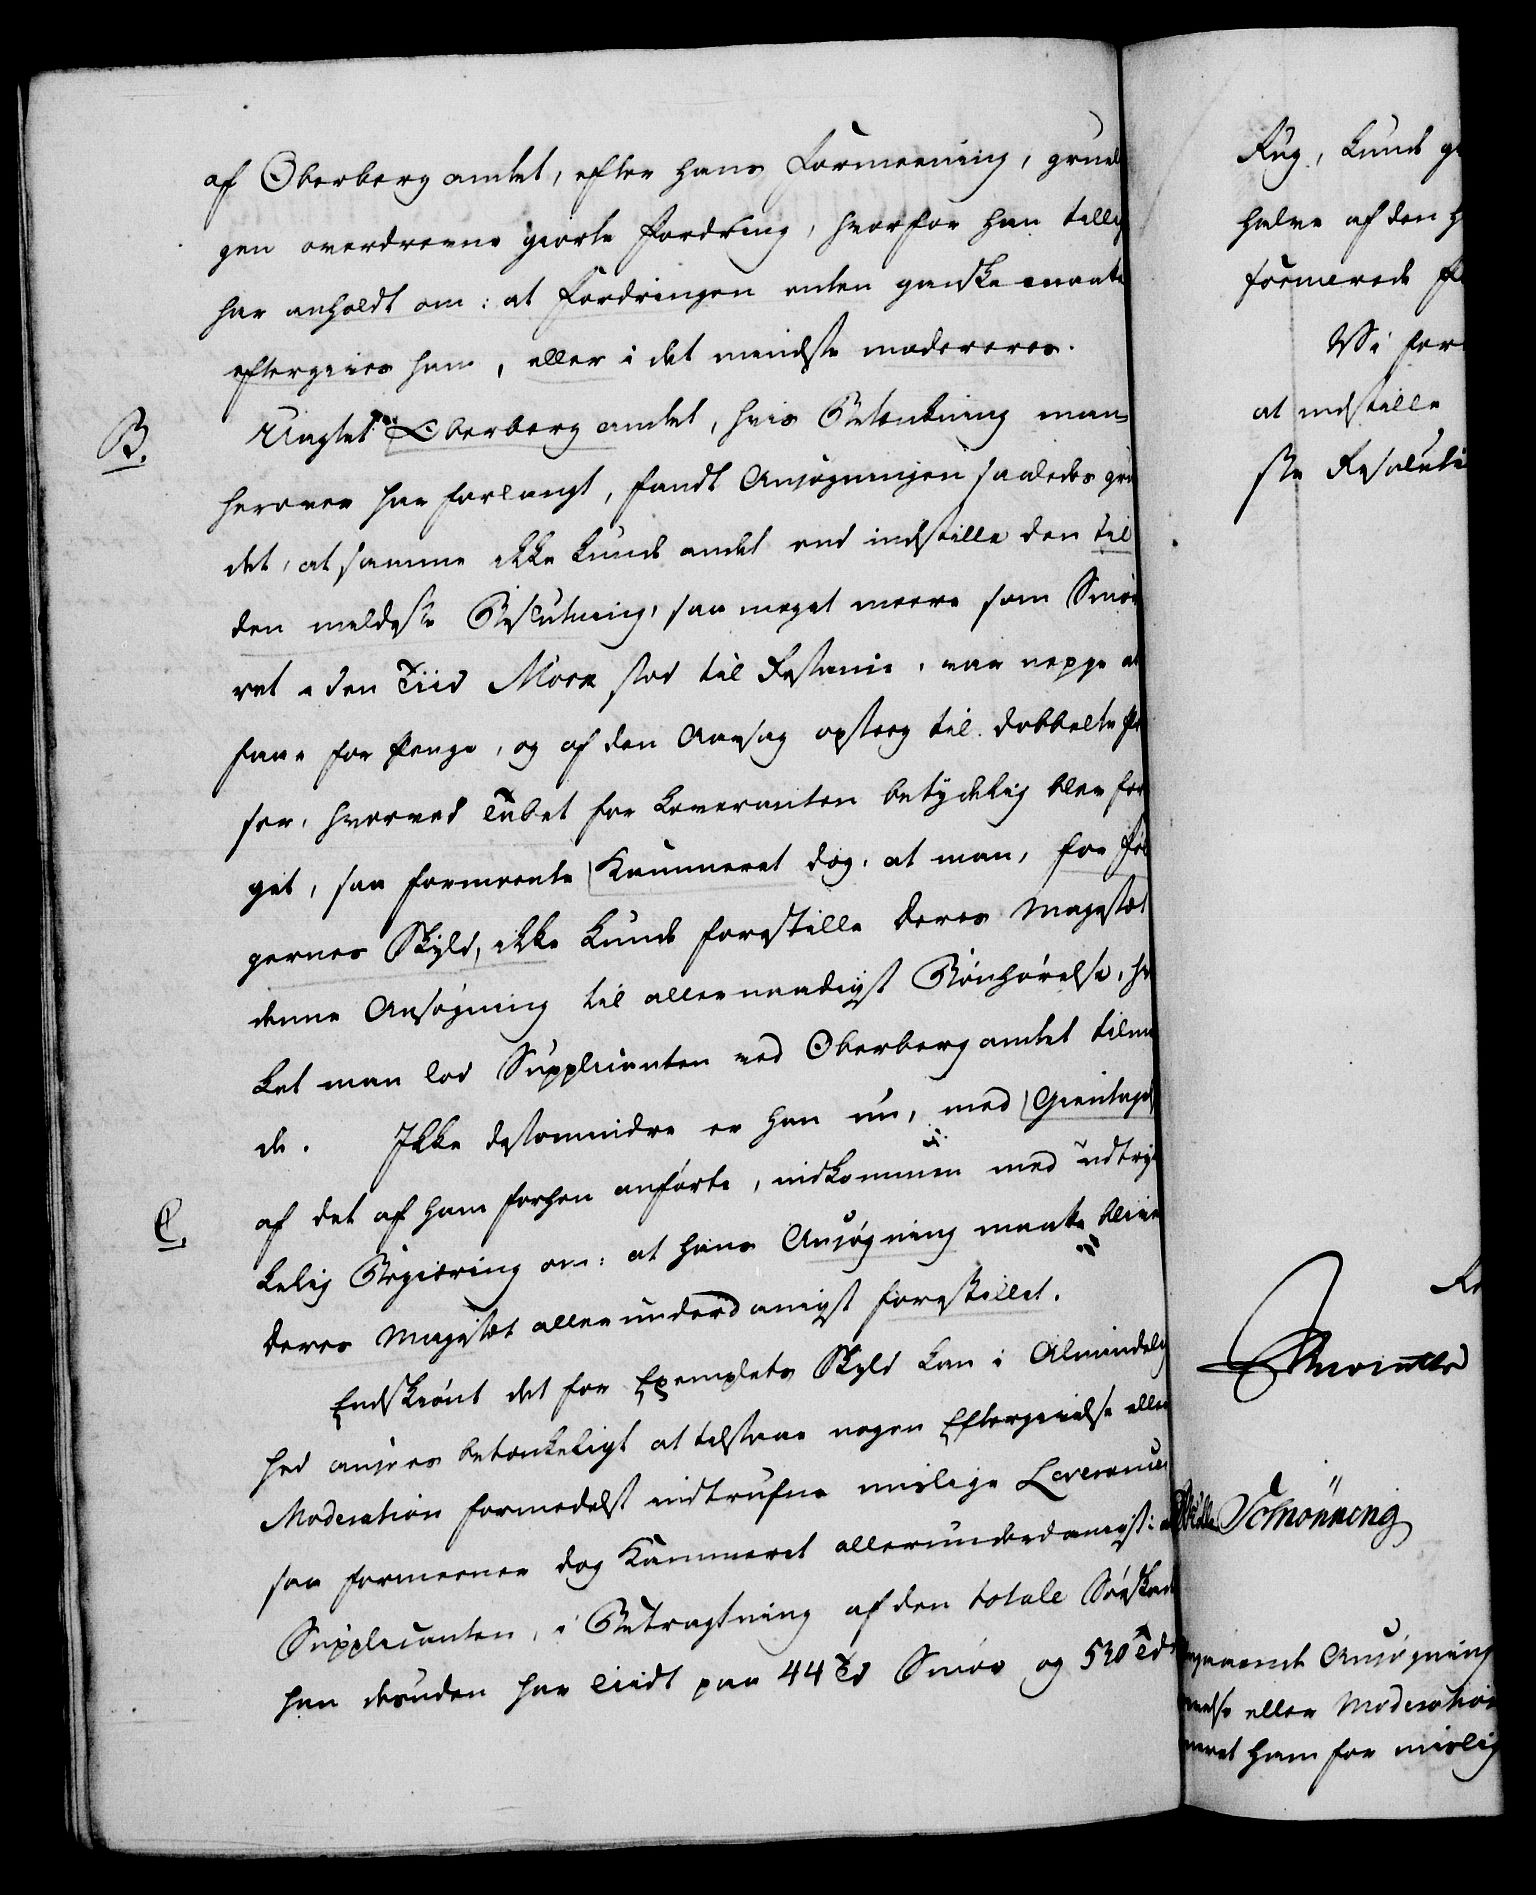 af Oberbergamtet, efter hans Formeening, grund
gen overdrevne giorte Fordring, hvorfor han tillig
har anholdt om: at Fordringen enten ganske maate
eftergives ham, eller i det mindste modereres.
B. Uagtet Oberbergamtet, hvis Betænkning man
herover har forlangt, fandt Ansøgningen saaledes grun
det, at samme ikke kunde andet end indstille den til
den mildeste Beslutning, saa meget meere som Smør
ret i den Tiid More stod til Restance, var neppe at
faae for Penge, og af den Aarsag opsteeg til dobbelte Pri
ser, hvorved Tabet for Leveranten betydelig blev for
get, saa formeente Kammeret dog, at man, for Føl
gernes Skyld, ikke kunde forestille Deres Majestæt
denne Ansøgning til allernaadigst Bønhørelse, hvil
ket man lod Supplicanten ved Oberbergamtet tilmel
de. Ikke destomindre er han nu, med Gientagel
C. af det af ham forhen anførte, indkommen med udtryk
kelig Begiering om: at hans Ansøgning maatte blive
Deres Majestæt allerunderdanigst forestillet.
Endskiønt det for Exemplets Skyld kan i Almindelig
hed ansees betænkeligt at tilstaae nogen Eftergivelse eller
Moderation formedelst indtrufne mislige Leverancer
saa formeener dog Kammeret allerunderdanigst: at
Supplicanten, i Betragtning af den totale Søeskade
han desuden har liidt paa 44 Td Smør og 530 Td
Rug, kunde
halve af den
formerede
Vi for
at indstille
ste Resoluti
Schønning
Ansøgning
else eller Moderation
meret ham for mislig